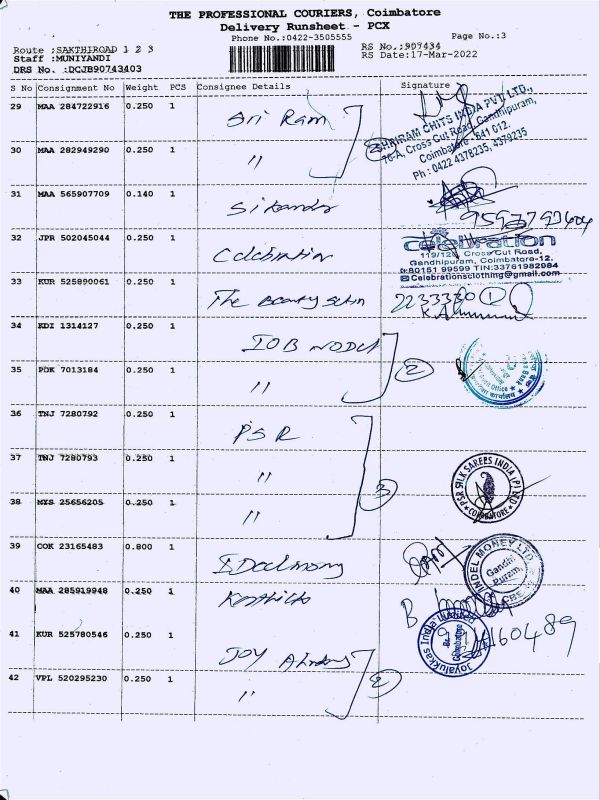 THE PROFESSIONAL COURIERS, Coimbatore
Delivery Runsheet - PCX
Phone No.:0422-3505555
Page No.:3
Route :SAKTHIROAD 1 2 3
RS No.:907434
Staff :MUNIYANDI
RS Date:17-Mar-2022
DRS No. :DCJB90743403
S No Consignment No Weight PCS Consignee Details Signature
29 MAA 284722916 0.250 1 Sri Ram
SHRIRAM CHITS INDIA PVT LTD.,
76-A, Cross Cut Road, Gandhipuram,
Coimbatore - 641 012.
Ph : 0422 4378235, 4379235
30 MAA 282949290 0.250 1 "
31 MAA 565907709 0.140 1
32 JPR 502045044 0.250 1 Celebration
celebration
119/120, Cross Cut Road,
Gandhipuram, Coimbatore-12.
80151 99599 TIN:33761982084
Celebrationsclothing@gmail.com
33 KUR 525890061 0.250 1 The Beauty
2233330 1
34 KDI 1314127 0.250 1 IOB
35 PDK 7013184 0.250 1 " 2
36 TNJ 7280792 0.250 1 PSR
37 TNJ 7280793 0.250 1 "
PSR SILK SAREES INDIA (P) LTD
COIMBATORE
38 MYS 25656205 0.250 1 " 3
39 COK 23165483 0.800 1
INDEL MONEY LTD
Gandhi
Puram,
CBE
40 MAA 285919948 0.250 1
41 KUR 525780546 0.250 1 JOY
Joyalukkas India Limited
Coimbatore
160489
42 VPL 520295230 0.250 1 " 2